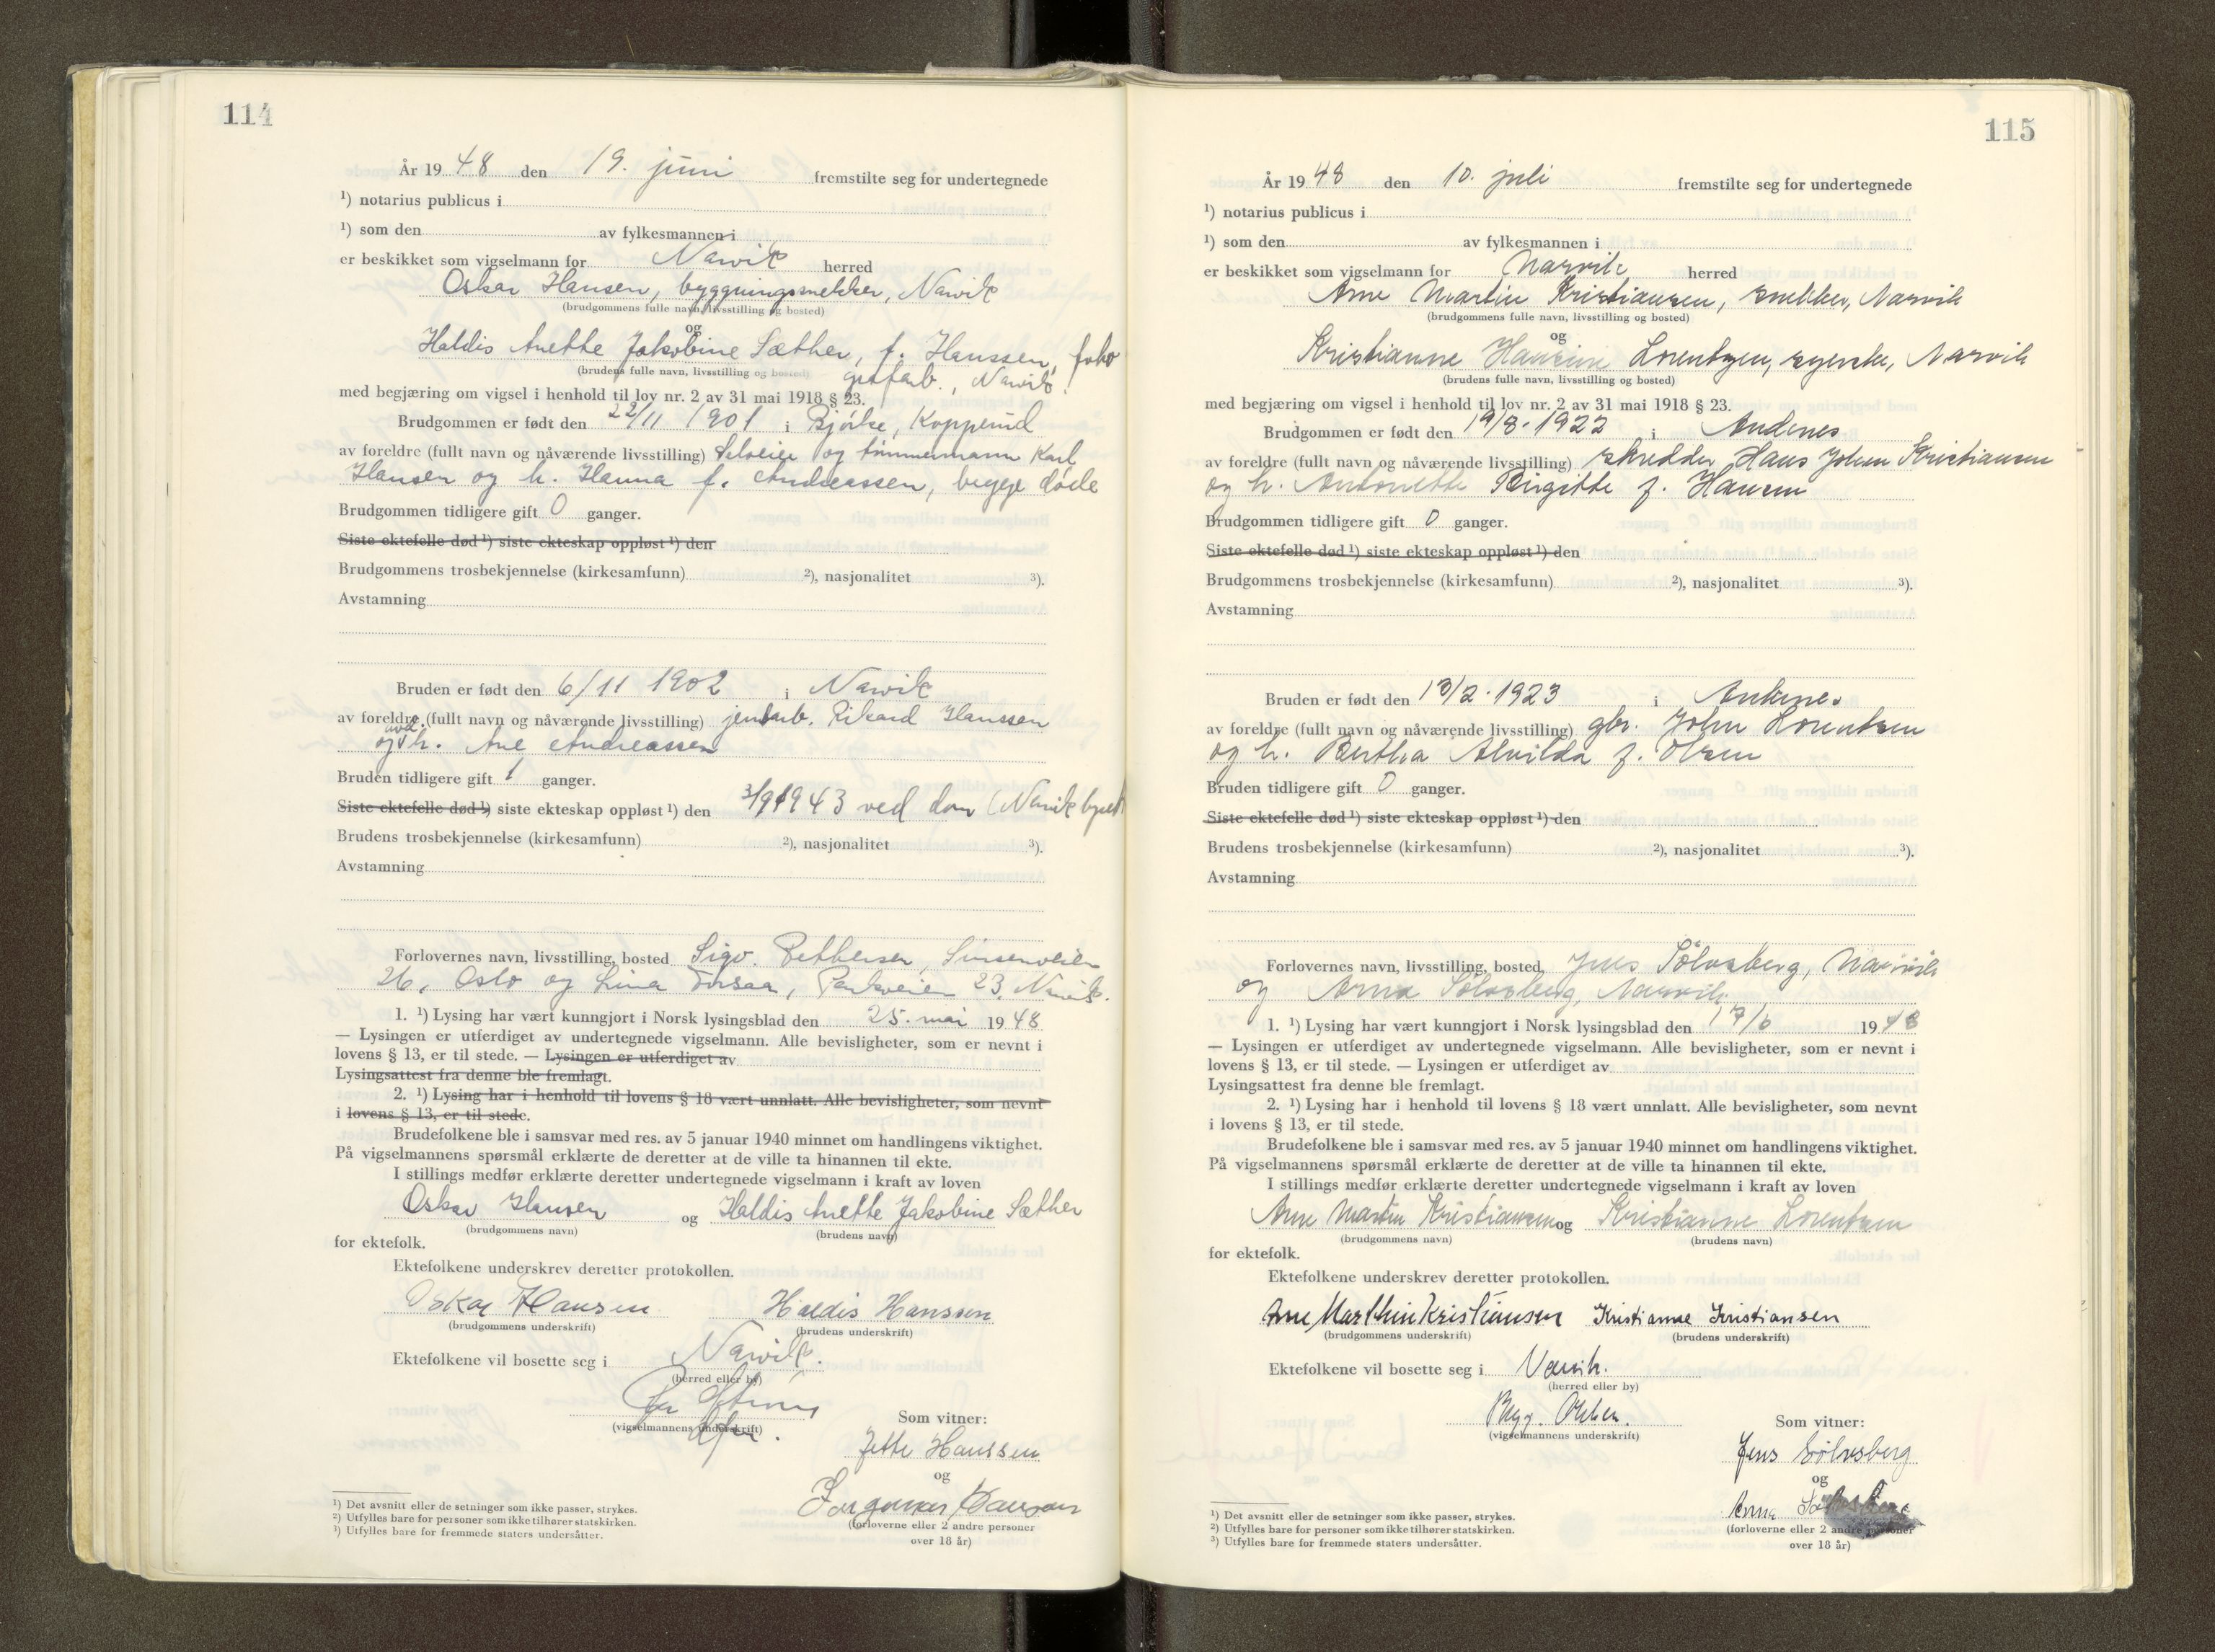 114
År 19 48 den 19. juni fremstilte seg for undertegnede
¹) notarius publicus i
¹) som den av fylkesmannen i
er beskikket som vigselmann for Narvik herred
Oskar Hansen, byggningsnekker, Narvik
(brudgommens fulle navn, livsstilling og bosted)
og
Haldis Anette Jakobine Sæther, f. Hanssen, foto
(brudens fulle navn, livsstilling og bosted) grafarb., Narvik
med begjæring om vigsel i henhold til lov nr. 2 av 31 mai 1918 § 23.
Brudgommen er født den 22/11 1901 i Bjørke,
av foreldre (fullt navn og nåværende livsstilling) Selveier og tømmermann Karl
Hansen og h. Hanna f. Andreassen, begge døde
Brudgommen tidligere gift 0 ganger.
Siste ektefelle død ¹) siste ekteskap oppløst ¹) den
Brudgommens trosbekjennelse (kirkesamfunn) ²), nasjonalitet ³).
Avstamning
Bruden er født den 6/11 1902 i Narvik
av foreldre (fullt navn og nåværende livsstilling) jernbarb. Rikard Hanssen
og h. Ane Andreassen
Bruden tidligere gift 1 ganger.
Siste ektefelle død ¹) siste ekteskap oppløst ¹) den 3/9 1943 ved dom (Narvik byrett
Brudens trosbekjennelse (kirkesamfunn) ²), nasjonalitet ³).
Avstamning
Forlovernes navn, livsstilling, bosted Sigv. Pettersen, Sinsenveien
26, Oslo og Lina Torsaa, Parkveien 23, Narvik.
1. ¹) Lysing har vært kunngjort i Norsk lysingsblad den 25. mai 19 48
— Lysingen er utferdiget av undertegnede vigselmann. Alle bevisligheter, som er nevnt i
lovens § 13, er til stede. — Lysingen er utferdiget av
Lysingsattest fra denne ble fremlagt.
2. ¹) Lysing har i henhold til lovens § 18 vært unnlatt. Alle bevisligheter, som nevnt
i lovens § 13, er til stede.
Brudefolkene ble i samsvar med res. av 5 januar 1940 minnet om handlingens viktighet.
På vigselmannens spørsmål erklærte de deretter at de ville ta hinannen til ekte.
I stillings medfør erklærte deretter undertegnede vigselmann i kraft av loven
Oskar Hansen og Haldis Anette Jakobine Sæther
(brudgommens navn) (brudens navn)
for ektefolk.
Ektefolkene underskrev deretter protokollen.
Oskar Hansen Haldis Hanssen
(brudgommens underskrift) (brudens underskrift)
Ektefolkene vil bosette seg i Narvik.
(herred eller by)
(vigselmannens underskrift)
Som vitner:
Jette Hanssen
og
(forloverne eller 2 andre personer
over 18 år)
¹) Det avsnitt eller de setninger som ikke passer, strykes.
²) Utfylles bare for personer som ikke tilhører statskirken.
³) Utfylles bare for fremmede staters undersåtter.
115
År 19 48 den 10. juli fremstilte seg for undertegnede
¹) notarius publicus i
¹) som den av fylkesmannen i
er beskikket som vigselmann for Narvik herred
Arne Martin Kristiansen, snekker, Narvik
(brudgommens fulle navn, livsstilling og bosted)
og
Kristianne Hansine Lorentzen, syerske, Narvik
(brudens fulle navn, livsstilling og bosted)
med begjæring om vigsel i henhold til lov nr. 2 av 31 mai 1918 § 23.
Brudgommen er født den 19/8-1922 i Andenes
av foreldre (fullt navn og nåværende livsstilling) skredder Hans Johan Kristiansen
og h. Antonette Birgitte f. Hansen
Brudgommen tidligere gift 0 ganger.
Siste ektefelle død ¹) siste ekteskap oppløst ¹) den
Brudgommens trosbekjennelse (kirkesamfunn) ²), nasjonalitet ³).
Avstamning
Bruden er født den 13/2-1923 i Ankenes
av foreldre (fullt navn og nåværende livsstilling) gbr. John Lorentsen
og h. Bertha Alvilda f. Olsen
Bruden tidligere gift 0 ganger.
Siste ektefelle død ¹) siste ekteskap oppløst ¹) den
Brudens trosbekjennelse (kirkesamfunn) ²), nasjonalitet ³).
Avstamning
Forlovernes navn, livsstilling, bosted Jens Sölvsberg, Narvik
og Arna Sölvsberg, Narvik.
1. ¹) Lysing har vært kunngjort i Norsk lysingsblad den 17/6 19 48
— Lysingen er utferdiget av undertegnede vigselmann. Alle bevisligheter, som er nevnt i
lovens § 13, er til stede. — Lysingen er utferdiget av
Lysingsattest fra denne ble fremlagt.
2. ¹) Lysing har i henhold til lovens § 18 vært unnlatt. Alle bevisligheter, som nevnt
i lovens § 13, er til stede.
Brudefolkene ble i samsvar med res. av 5 januar 1940 minnet om handlingens viktighet.
På vigselmannens spørsmål erklærte de deretter at de ville ta hinannen til ekte.
I stillings medfør erklærte deretter undertegnede vigselmann i kraft av loven
Arne Martin Kristiansen og Kristianne Lorentsen
(brudgommens navn) (brudens navn)
for ektefolk.
Ektefolkene underskrev deretter protokollen.
Arne Marthin Kristiansen Kristianne Kristiansen
(brudgommens underskrift) (brudens underskrift)
Ektefolkene vil bosette seg i Narvik.
(herred eller by)
(vigselmannens underskrift)
Som vitner:
Jens Sölvsberg
og
Arna
(forloverne eller 2 andre personer
over 18 år)
¹) Det avsnitt eller de setninger som ikke passer, strykes.
²) Utfylles bare for personer som ikke tilhører statskirken.
³) Utfylles bare for fremmede staters undersåtter.